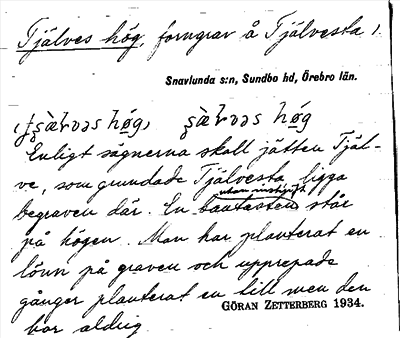 Tjälves hög, forngrav å Tjälvesta 1.
Snavlunda s:n, Sundbo hd, Örebro län.
hög, hög
Enligt sägnerna skall jätten Tjäl-
ve, som grundade Tjälvesta, ligga
utan inskrift
begraven där. En bautasten står
på högen. Man har planterat en
lönn på graven och upprepade
gånger planterat en till men den
GÖRAN ZETTERBERG 1934.
har aldrig